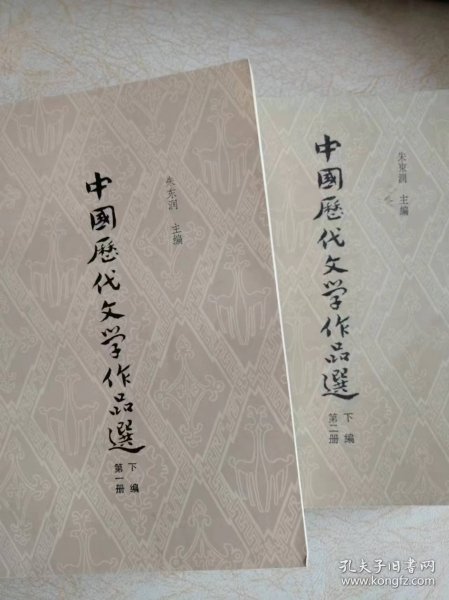 中國歷代文学作品選
朱东润 主编
下编
第一册
中國歷代文学作品選
朱東潤 主编
下编
第二册
孔夫子旧书网
www.kongfz.com